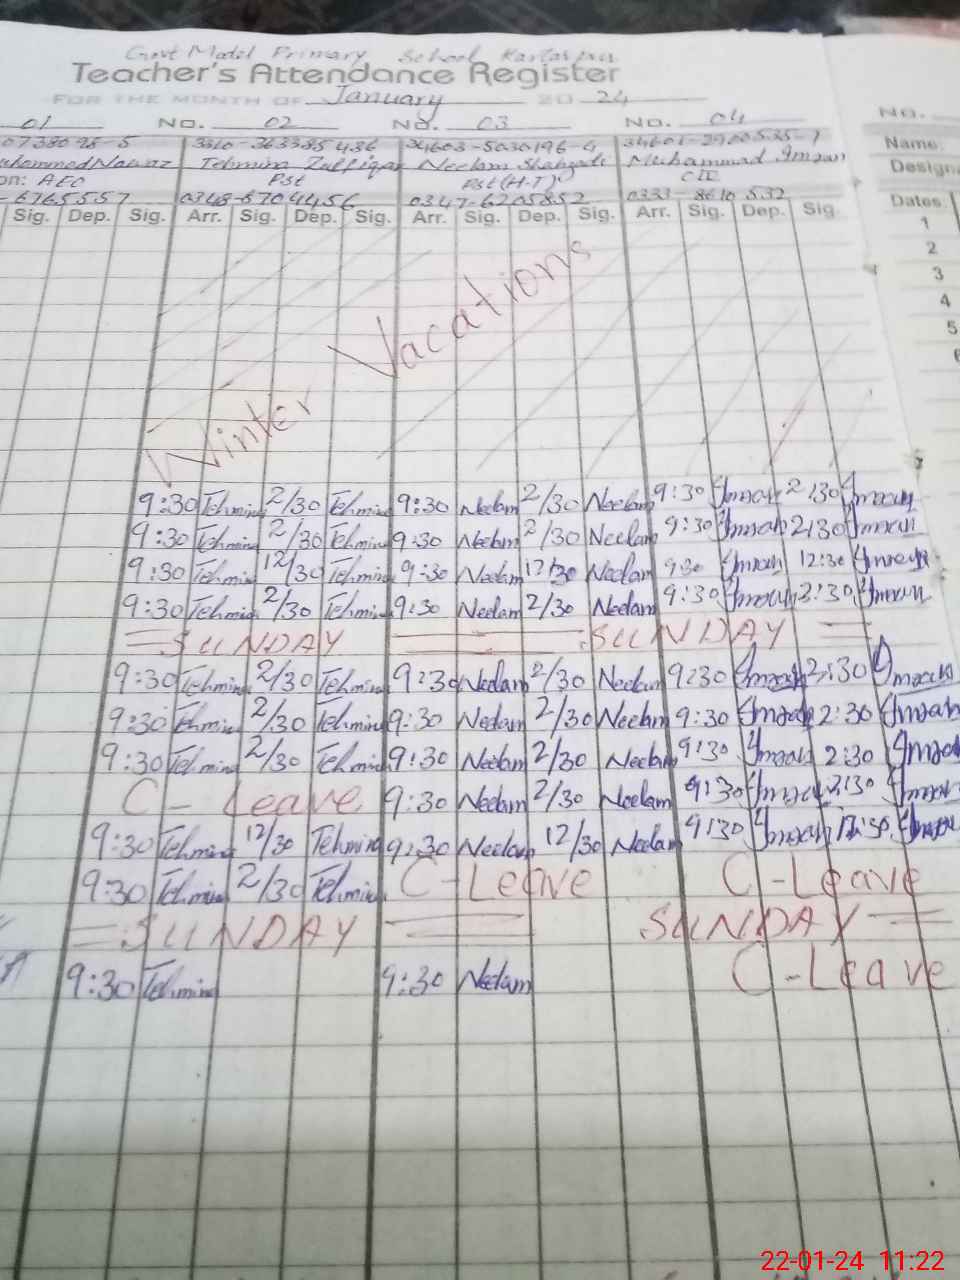 Govt Model Primary School
Teacher's Attendance Register
FOR THE MONTH OF January 20 24
01 NO. 02 NO. 03 NO. 04 NO.
Tehmina Zulfiqar Neelam Shahzadi Muhammad Imran Name:
on: AEO Pst Pst (H.T) Design
-6765557 0348-6704456 0347-6205852 0333-8610532 Dates
Sig. Dep. Sig. Arr. Sig. Dep. Sig. Arr. Sig. Dep. Sig. Arr. Sig. Dep. Sig
1
2
3
4
5
6
Winter Vacations
9:30 Tehmina 2/30 Tehmina 9:30 Neelam 2/30 Neelam 9:30 Imran 2:30 Imran
9:30 Tehmina 2/30 Tehmina 9:30 Neelam 2/30 Neelam 9:30 Imran 2:30 Imran
9:30 Tehmina 12/30 Tehmina 9:30 Neelam 12/30 Neelam 9:30 Imran 12:30 Imran
9:30 Tehmina 2/30 Tehmina 9:30 Neelam 2/30 Neelam 9:30 Imran 2:30 Imran
=SUNDAY = SUNDAY =
9:30 Tehmina 2/30 Tehmina 9:30 Neelam 2/30 Neelam 9:30 Imran 2:30 Imran
9:30 Tehmina 2/30 Tehmina 9:30 Neelam 2/30 Neelam 9:30 Imran 2:30 Imran
9:30 Tehmina 2/30 Tehmina 9:30 Neelam 2/30 Neelam 9:30 Imran 2:30 Imran
C- Leave 9:30 Neelam 2/30 Neelam 9:30 Imran 2:30 Imran
9:30 Tehmina 12/30 Tehmina 9:30 Neelam 12/30 Neelam 9:30 Imran 12:30 Imran
9:30 Tehmina 2/30 Tehmina C-Leave C-Leave
=SUNDAY = SUNDAY =
9:30 Tehmina 9:30 Neelam C-Leave
22-01-24 11:22